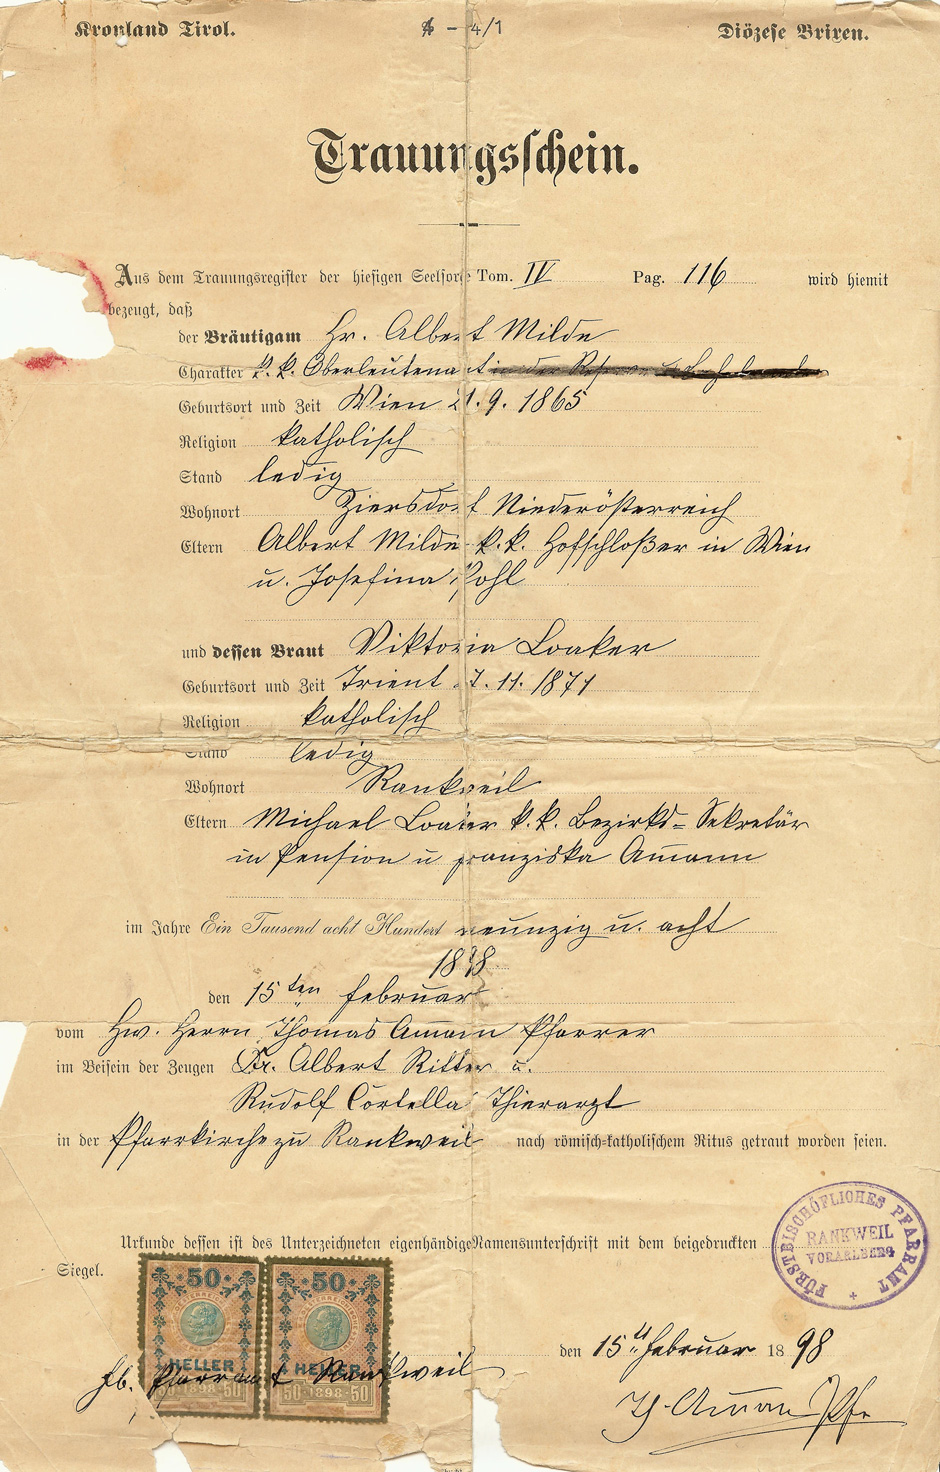 Kronland Tirol.
4/1
Diözese Brixen.
Trauungsschein.
Aus dem Trauungsregister der hiesigen Seelsorge Tom. IV Pag. 116 wird hiemit
bezeugt, daß
der Bräutigam Hr. Albert Milde
Charakter k. k. Oberleutenant in der Reserve
Geburtsort und Zeit Wien 21. 9. 1865
Religion katholisch
Stand ledig
Wohnort Ziersdorf Niederösterreich
Eltern Albert Milde k. k. Hofschloßer in Wien
u. Josefina Pohl
und dessen Braut Viktoria Loaker
Geburtsort und Zeit Trient 7. 11. 1871
Religion katholisch
Stand ledig
Wohnort Rankweil
Eltern Michael Loaker k. k. Bezirks= Sekretär
in Pension u franziska Amann
im Jahre Ein Tausend acht Hundert neunzig u. acht
1898
den 15ten februar
vom Hw. Herrn Thomas Amann Pfarrer
im Beisein der Zeugen Dr. Albert Ritter u.
Rudolf Cortella Thierarzt
in der Pfarrkirche zu Rankweil nach römisch-katholischem Ritus getraut worden seien.
Urkunde dessen ist des Unterzeichneten eigenhändige Namensunterschrift mit dem beigedruckten
Siegel.
FÜRSTBISCHÖFLICHES PFARRAMT
RANKWEIL
VORARLBERG
50 HELLER 50 1898 50
50 HELLER 50 1898 50
fb. Pfarramt Rankweil
den 15. februar 1898
Th. Amann Pfr